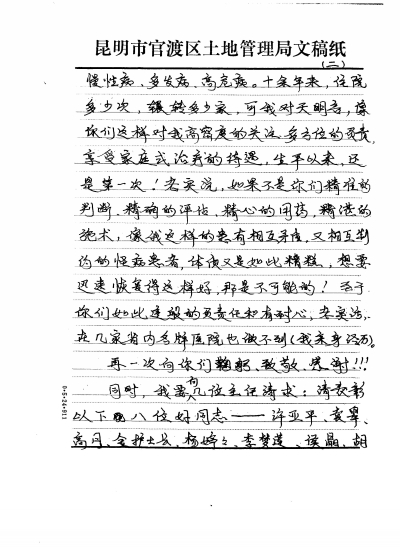 昆明市官渡区土地管理局文稿纸
(二)
慢性病、多发病、高危病。十余年来,住院
多少次,辗转多少家,可我对天明言,像
你们这样对我高密度的关注,多方位的负责,
享受家庭式治病的待遇,生平以来,还
是第一次!老实说,如果不是你们精准的
判断、精确的评估、精心的用药、精湛的
施术,像我这样的患有相互矛盾,又相互制
约的怪病患者,体质又是如此糟糕,想要
迅速恢复得这样好,那是不可能的!至于
你们如此这般的负责任和有耐心,老实话,
在几家省内名牌医院也做不到(我亲身经历)。
再一次向你们鞠躬、致敬、感谢!!!
同时,我要向几位主任请求:请表彰
以下 八位好同志——许亚平、袁翠、
高月、金护士长、杨婷々、李梦莲、误晶、胡
0-5-24-911